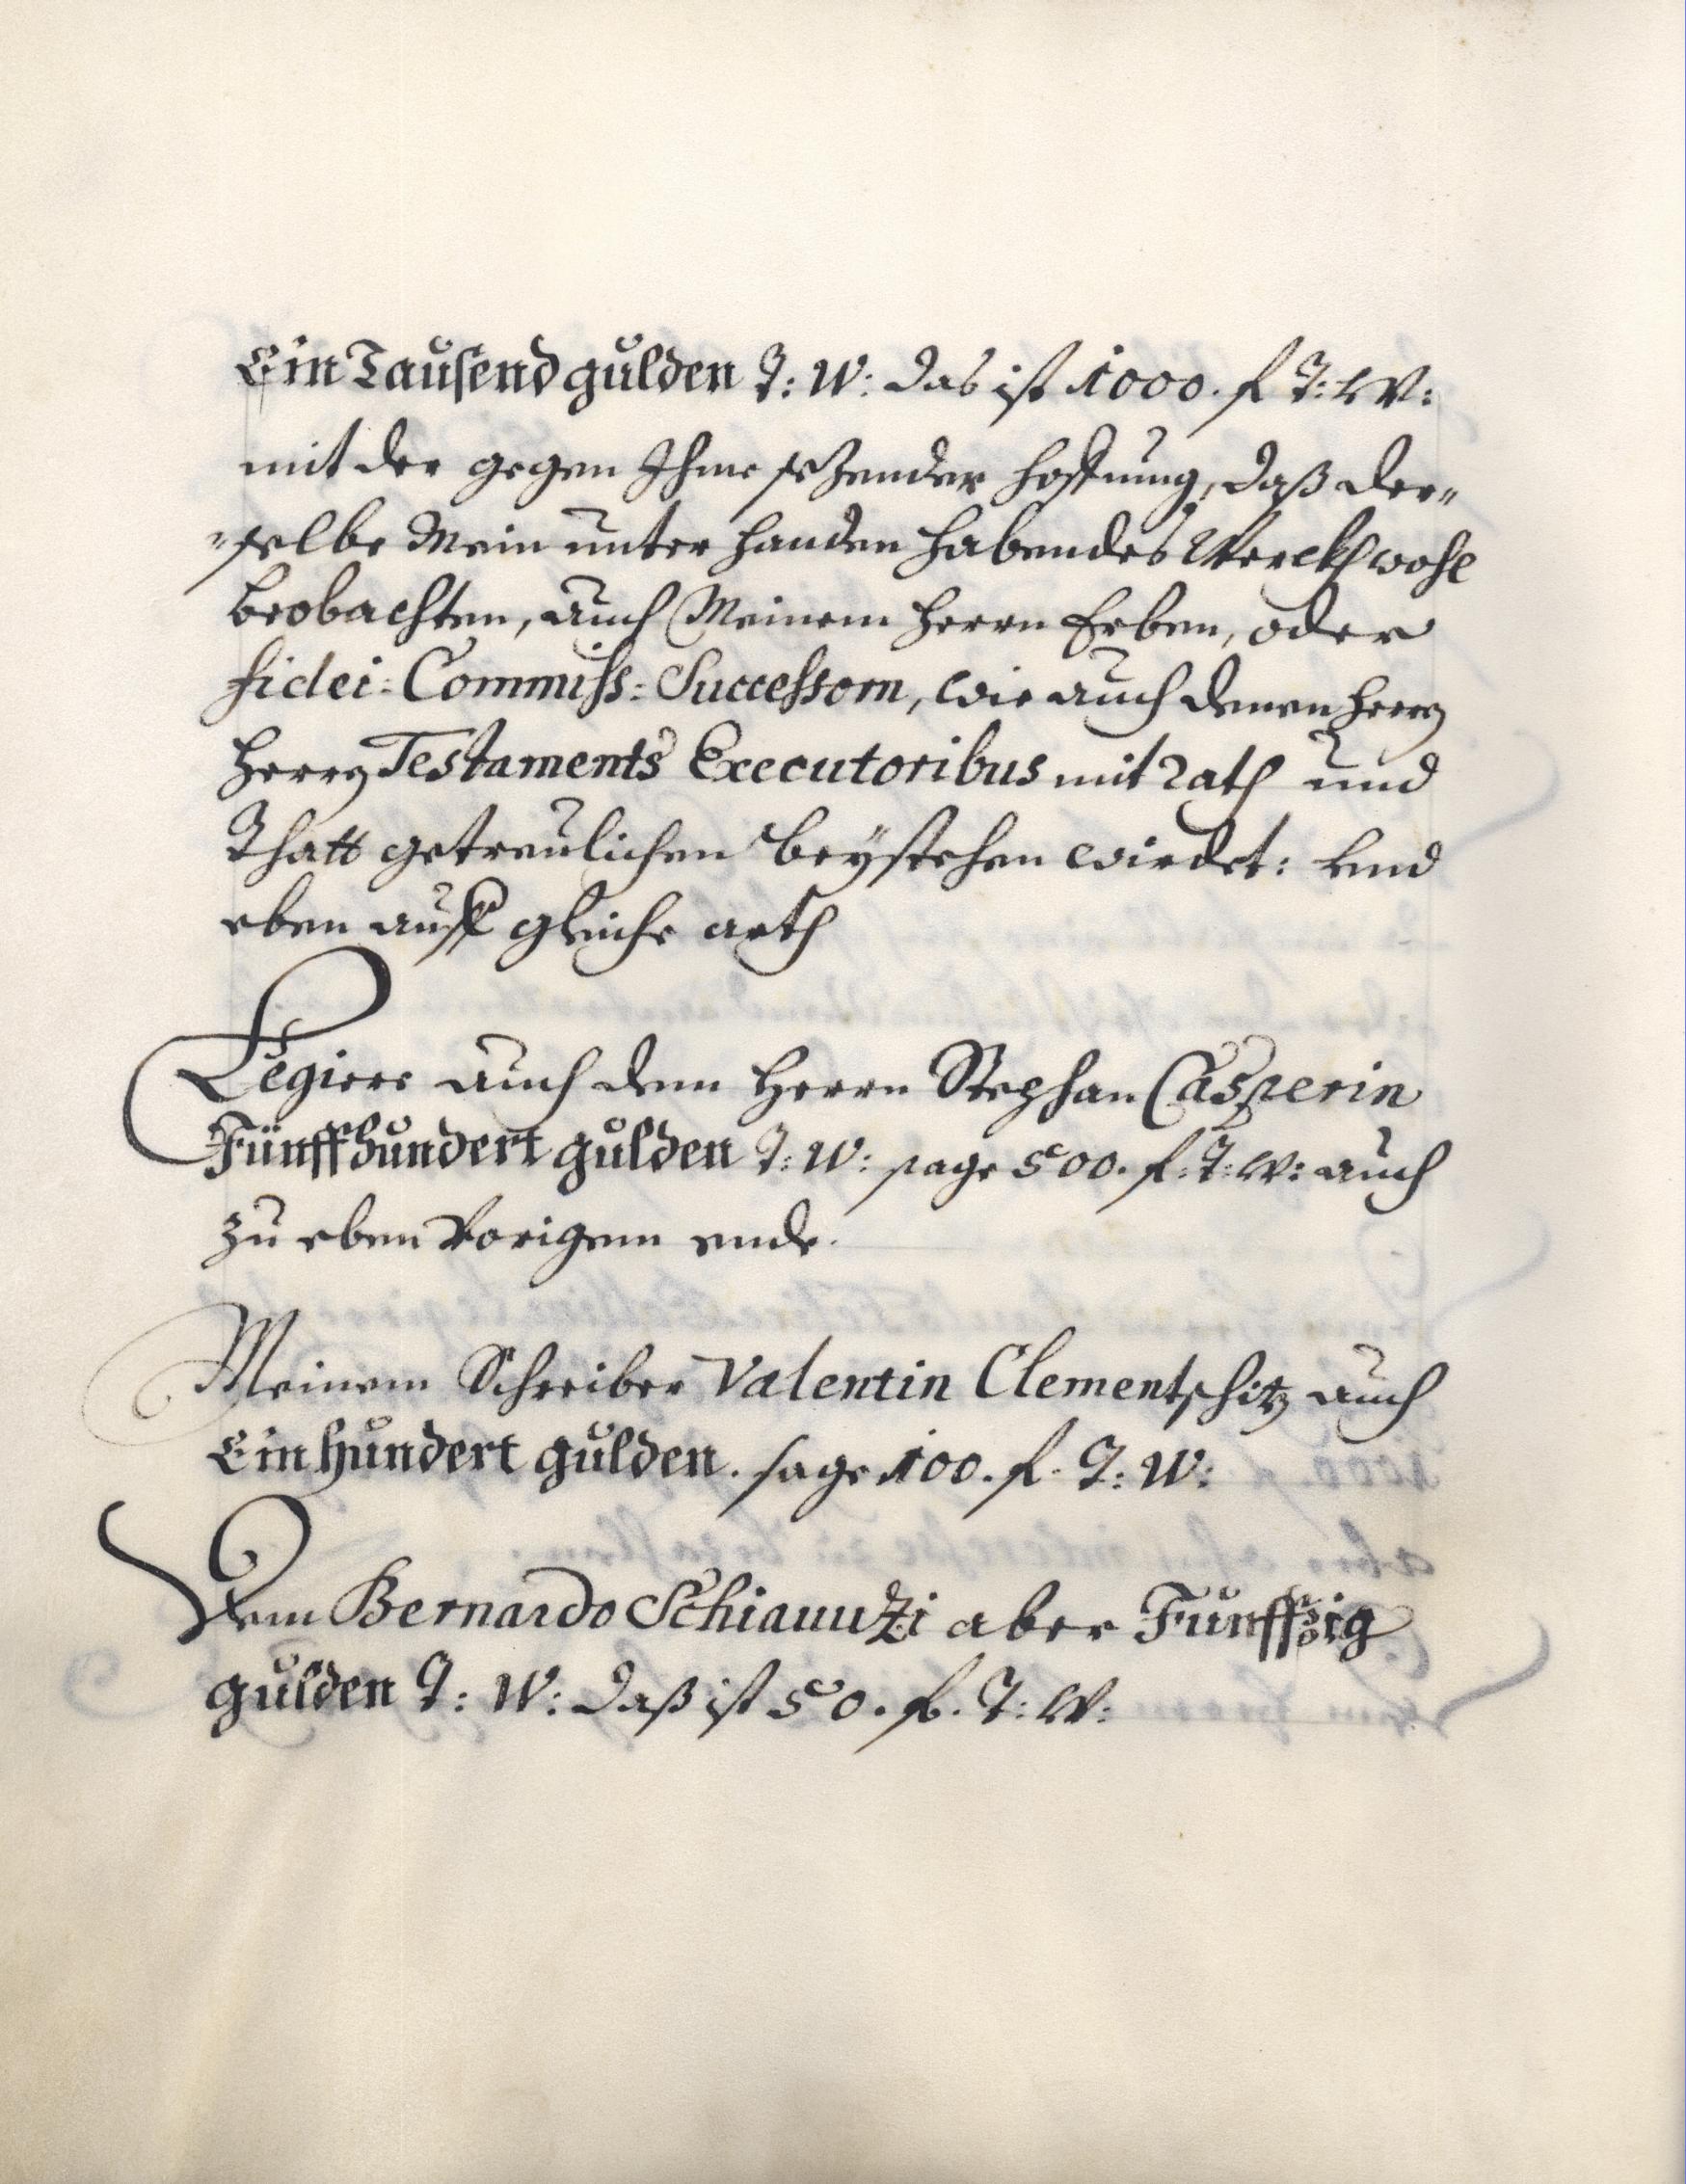 Ein Tausend gulden T: W: das ist 1000. f T: W:
mit der gegen Ihme sezender hoffnung, daß der„
„selbe Mein unter handen habendes Werckh wohl
beobachten, auch Meinem Herrn Erben, oder
fidei-Commiss-Successorn, wie auch denen Herrn
Herrn Testaments Executoribus mit Rath und
Thatt getreulichen beystehen wirdet: Und
eben auff gleiche arth
Legiere auch dem Herrn Stephan Casperin
Fünffhundert gulden T: W: sage 500. f: T: W: auch
zu eben Vorigem ende.
Meinem Schreiber Valentin Clementschitz auch
Ein hundert gulden. sage 100. f. T: W:
Dem Bernardo Schiauuzi aber Funffzig
gulden T: W: daß ist 50. f. T: W: